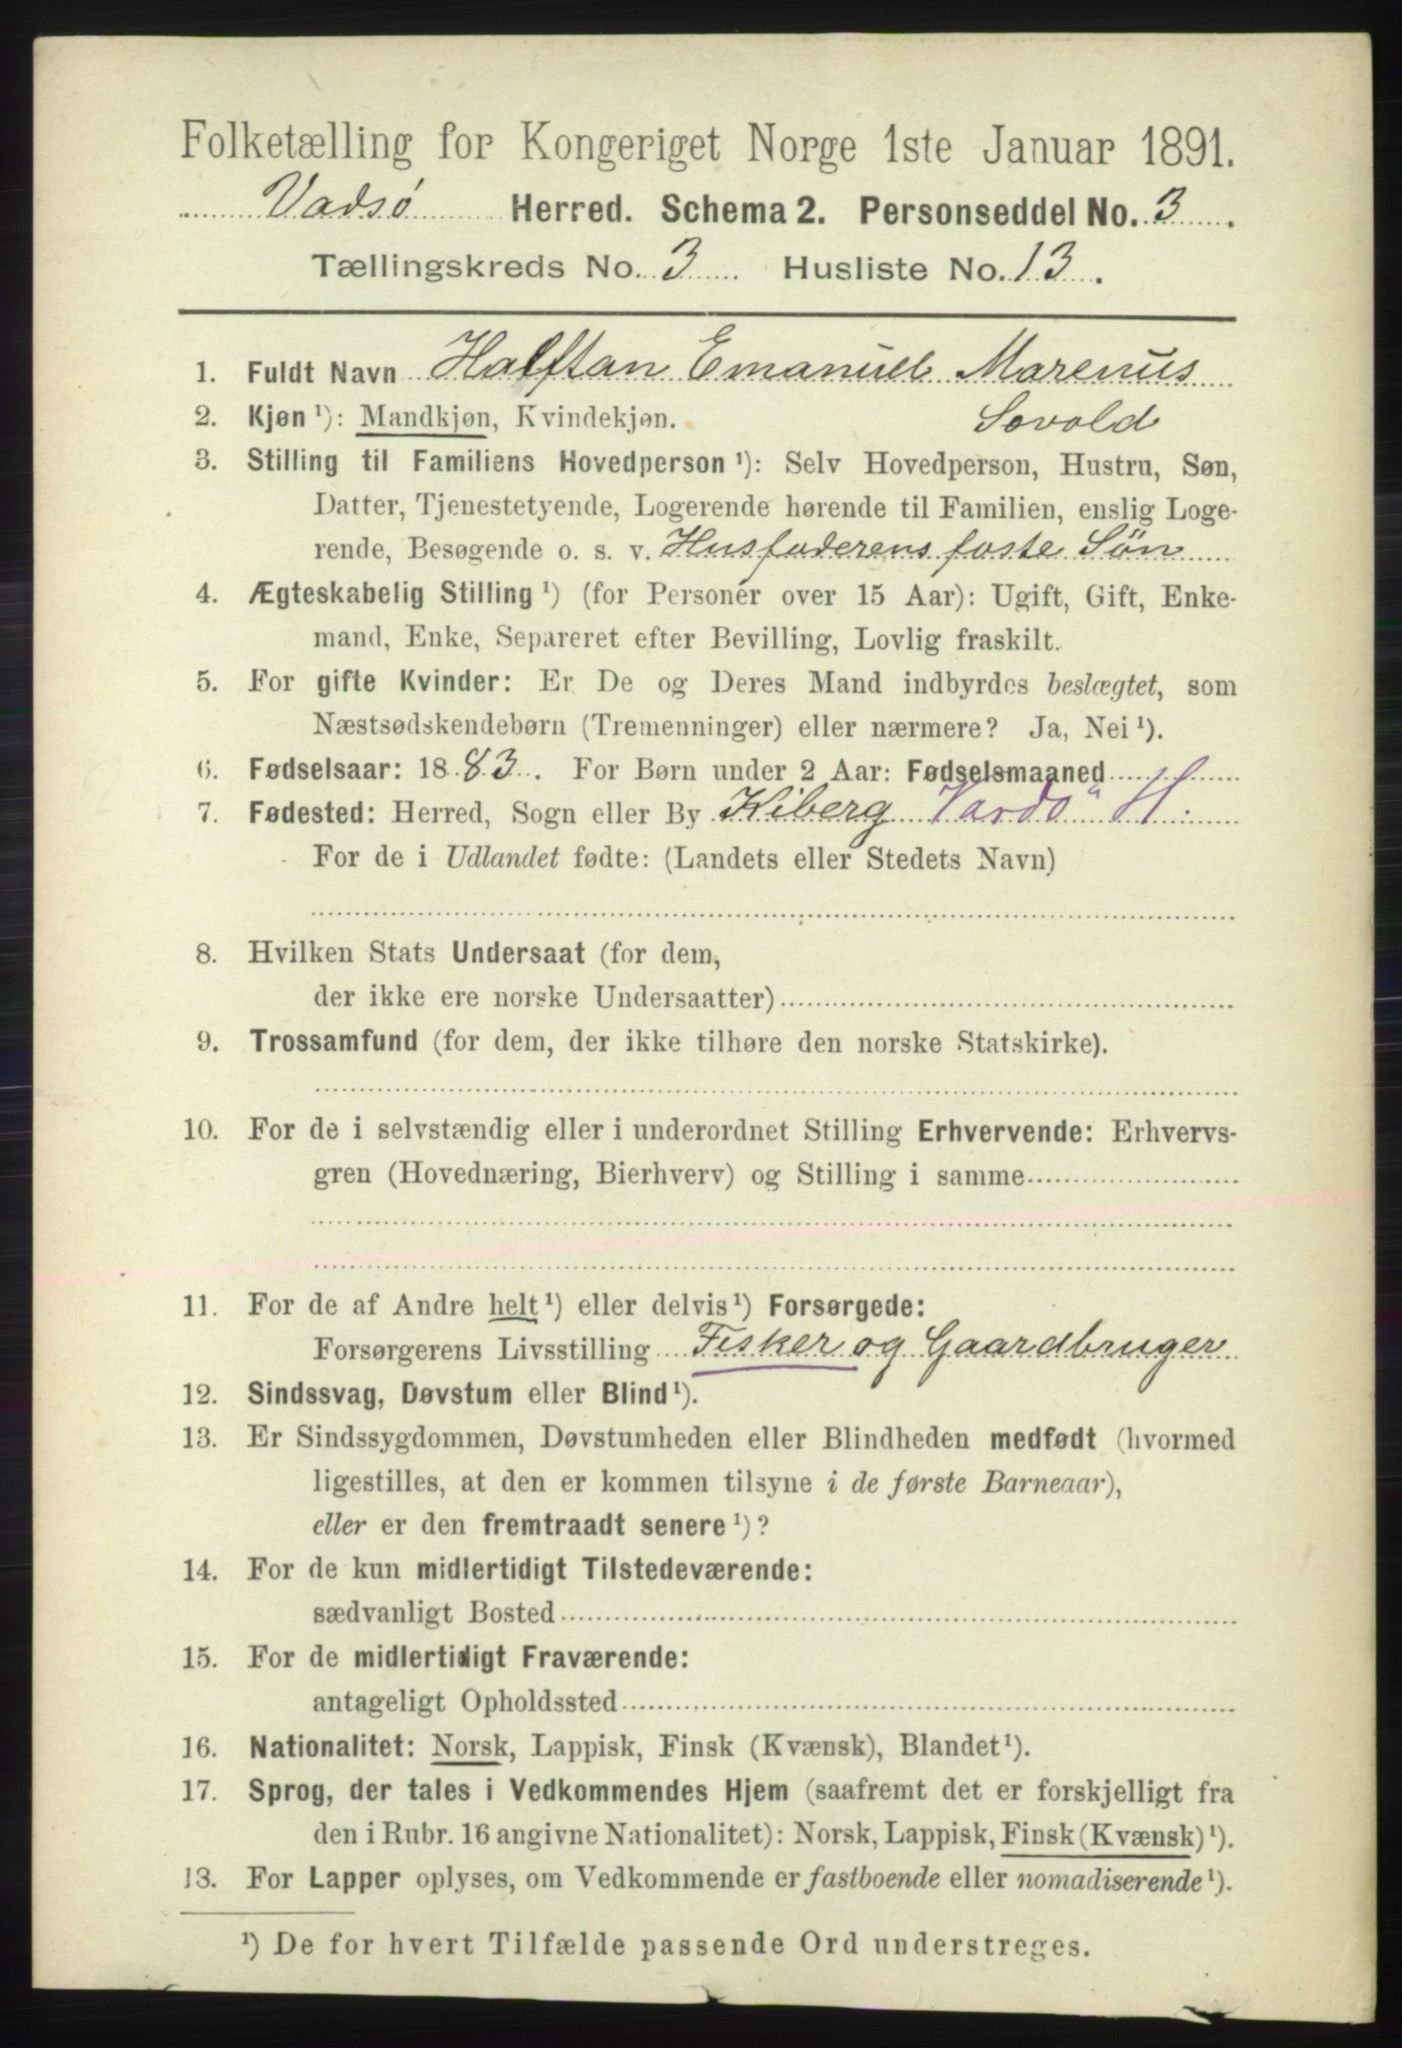 Folketælling for Kongeriget Norge 1ste Januar 1891.
Vadsø Herred. Schema 2. Personseddel No. 3.
Tællingskreds No. 3 Husliste No. 13.
1. Fuldt Navn Halftan Emanuel Marenus
2. Kjøn ¹): Mandkjøn, Kvindekjøn. Sovold
3. Stilling til Familiens Hovedperson ¹): Selv Hovedperson, Hustru, Søn,
Datter, Tjenestetyende, Logerende hørende til Familien, enslig Loge-
rende, Besøgende o. s. v. Husfaderens foste Søn
4. Ægteskabelig Stilling ¹) (for Personer over 15 Aar): Ugift, Gift, Enke-
mand, Enke, Separeret efter Bevilling, Lovlig fraskilt.
5. For gifte Kvinder: Er De og Deres Mand indbyrdes beslægtet, som
Næstsødskendebørn (Tremenninger) eller nærmere? Ja, Nei ¹).
6. Fødselsaar: 1883. For Børn under 2 Aar: Fødselsmaaned
7. Fødested: Herred, Sogn eller By Kiberg Vardö H.
For de i Udlandet fødte: (Landets eller Stedets Navn)
8. Hvilken Stats Undersaat (for dem,
der ikke ere norske Undersaatter)
9. Trossamfund (for dem, der ikke tilhøre den norske Statskirke).
10. For de i selvstændig eller i underordnet Stilling Erhvervende: Erhvervs-
gren (Hovednæring, Bierhverv) og Stilling i samme
11. For de af Andre helt ¹) eller delvis ¹) Forsørgede:
Forsørgerens Livsstilling Fisker og Gaardbruger
12. Sindssvag, Døvstum eller Blind ¹).
13. Er Sindssygdommen, Døvstumheden eller Blindheden medfødt (hvormed
ligestilles, at den er kommen tilsyne i de første Barneaar),
eller er den fremtraadt senere ¹)?
14. For de kun midlertidigt Tilstedeværende:
sædvanligt Bosted
15. For de midlertidigt Fraværende:
antageligt Opholdssted
16. Nationalitet: Norsk, Lappisk, Finsk (Kvænsk), Blandet ¹).
17. Sprog, der tales i Vedkommendes Hjem (saafremt det er forskjelligt fra
den i Rubr. 16 angivne Nationalitet): Norsk, Lappisk, Finsk (Kvænsk) ¹).
13. For Lapper oplyses, om Vedkommende er fastboende eller nomadiserende ¹).
¹) De for hvert Tilfælde passende Ord understreges.